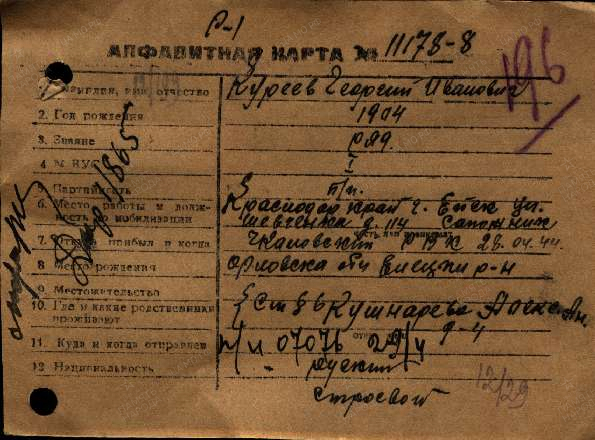 Р-1
АЛФАВИТНАЯ КАРТА № 11178-8
196
1. Фамилия, имя, отчество Куреев Георгий Иванович
2. Год рождения 1904
3. Звание ряд.
4. № ВУС 1
5. Партийность б/п.
6. Место работы и долж-
ность до мобилизации Краснодар край г. Ейск ул.
Шевченко д. 114 Сапожник
7. Откуда прибыл и когда Чкаловский РВК 28.04.44.
8. Место рождения Орловска обл р-н
9. Местожительство
10. Где и какие родственники
проживают Кушнарева
11. Куда и когда отправлен п/п 07076 29/4
12. Национальность русский
строевой
12/29